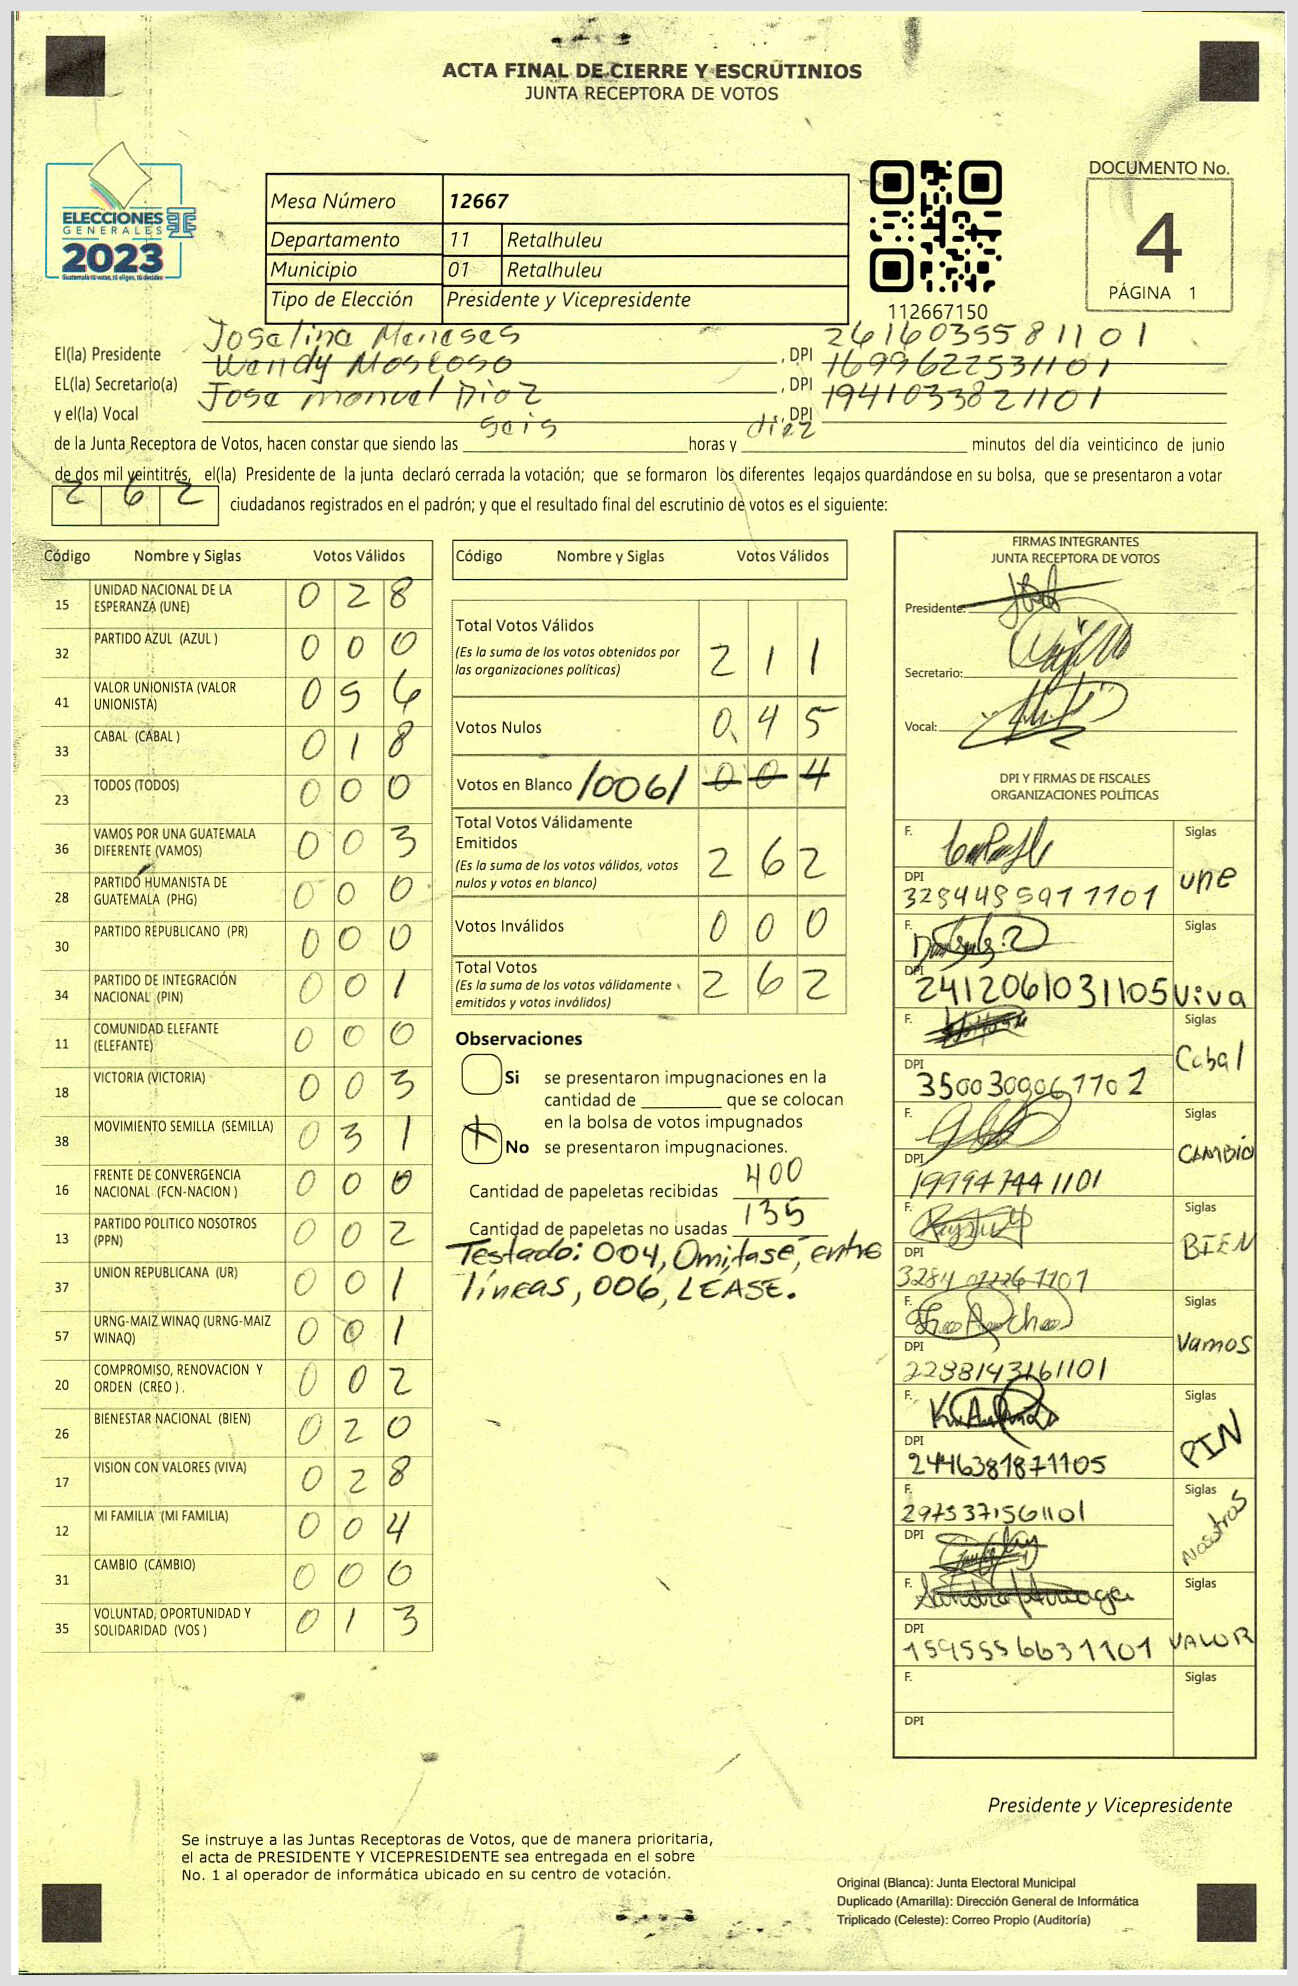 ACTA FINAL DE CIERRE Y ESCRUTINIOS
JUNTA RECEPTORA DE VOTOS
ELECCIONES
GENERALES
2023
Guatemala tú votas, tú eliges, tú decides
Mesa Número 12667
Departamento 11 Retalhuleu
Municipio 01 Retalhuleu
Tipo de Elección Presidente y Vicepresidente
112667150
DOCUMENTO No.
4
PÁGINA 1
El(la) Presidente Josefina Meneses , DPI 2616035581101
EL(la) Secretario(a) Wendy Moscoso , DPI 1699622531101
y el(la) Vocal Jose manuel Dioz , DPI 1941033821101
de la Junta Receptora de Votos, hacen constar que siendo las seis horas y diez minutos del día veinticinco de junio
de dos mil veintitrés, el(la) Presidente de la junta declaró cerrada la votación; que se formaron los diferentes legajos guardándose en su bolsa, que se presentaron a votar
262 ciudadanos registrados en el padrón; y que el resultado final del escrutinio de votos es el siguiente:
Código Nombre y Siglas Votos Válidos
15 UNIDAD NACIONAL DE LA ESPERANZA (UNE) 0 2 8
32 PARTIDO AZUL (AZUL ) 0 0 0
41 VALOR UNIONISTA (VALOR UNIONISTA) 0 5 6
33 CABAL (CABAL ) 0 1 8
23 TODOS (TODOS) 0 0 0
36 VAMOS POR UNA GUATEMALA DIFERENTE (VAMOS) 0 0 3
28 PARTIDO HUMANISTA DE GUATEMALA (PHG) 0 0 0
30 PARTIDO REPUBLICANO (PR) 0 0 0
34 PARTIDO DE INTEGRACIÓN NACIONAL (PIN) 0 0 1
11 COMUNIDAD ELEFANTE (ELEFANTE) 0 0 0
18 VICTORIA (VICTORIA) 0 0 3
38 MOVIMIENTO SEMILLA (SEMILLA) 0 3 1
16 FRENTE DE CONVERGENCIA NACIONAL (FCN-NACION ) 0 0 0
13 PARTIDO POLITICO NOSOTROS (PPN) 0 0 2
37 UNION REPUBLICANA (UR) 0 0 1
57 URNG-MAIZ WINAQ (URNG-MAIZ WINAQ) 0 0 1
20 COMPROMISO, RENOVACION Y ORDEN (CREO ) . 0 0 2
26 BIENESTAR NACIONAL (BIEN) 0 2 0
17 VISION CON VALORES (VIVA) 0 2 8
12 MI FAMILIA (MI FAMILIA) 0 0 4
31 CAMBIO (CAMBIO) 0 0 0
35 VOLUNTAD, OPORTUNIDAD Y SOLIDARIDAD (VOS ) 0 1 3
Código Nombre y Siglas Votos Válidos
Total Votos Válidos 2 1 1
(Es la suma de los votos obtenidos por las organizaciones políticas)
Votos Nulos 0 4 5
Votos en Blanco /006/ 0 0 4
Total Votos Válidamente Emitidos 2 6 2
(Es la suma de los votos válidos, votos nulos y votos en blanco)
Votos Inválidos 0 0 0
Total Votos 2 6 2
(Es la suma de los votos válidamente emitidos y votos inválidos)
Observaciones
Si se presentaron impugnaciones en la
cantidad de ________ que se colocan
en la bolsa de votos impugnados
X No se presentaron impugnaciones.
Cantidad de papeletas recibidas 400
Cantidad de papeletas no usadas 135
Testado: 004, Omitase, entre
líneas, 006, LEASE.
FIRMAS INTEGRANTES
JUNTA RECEPTORA DE VOTOS
Presidente:
Secretario:
Vocal:
DPI Y FIRMAS DE FISCALES
ORGANIZACIONES POLÍTICAS
F. Siglas une
DPI 3284485971101
F. Siglas Viva
DPI 2412061031105
F. Siglas Cabal
DPI 3500309061101
F. Siglas CAMBIO
DPI 199947441101
F. Siglas BIEN
DPI
F. Siglas Vamos
DPI 2288143161101
F. Siglas PIN
DPI 2446381871105
F. 2975371561101 Siglas Nosotros
DPI
F. Sandra Arreaga Siglas VALOR
DPI 1595556631101
F. Siglas
DPI
Presidente y Vicepresidente
Se instruye a las Juntas Receptoras de Votos, que de manera prioritaria,
el acta de PRESIDENTE Y VICEPRESIDENTE sea entregada en el sobre
No. 1 al operador de informática ubicado en su centro de votación.
Original (Blanca): Junta Electoral Municipal
Duplicado (Amarilla): Dirección General de Informática
Triplicado (Celeste): Correo Propio (Auditoría)